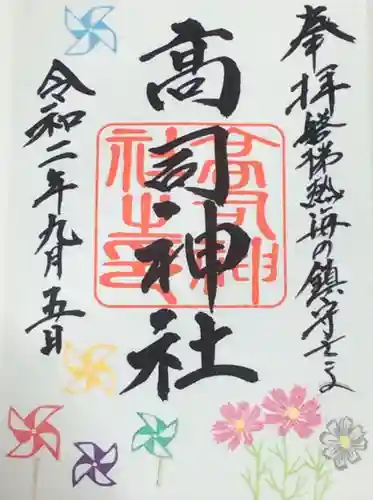 奉拝 磐梯熱海の鎮守さま
高司神社
高司神社之印
令和二年九月五日